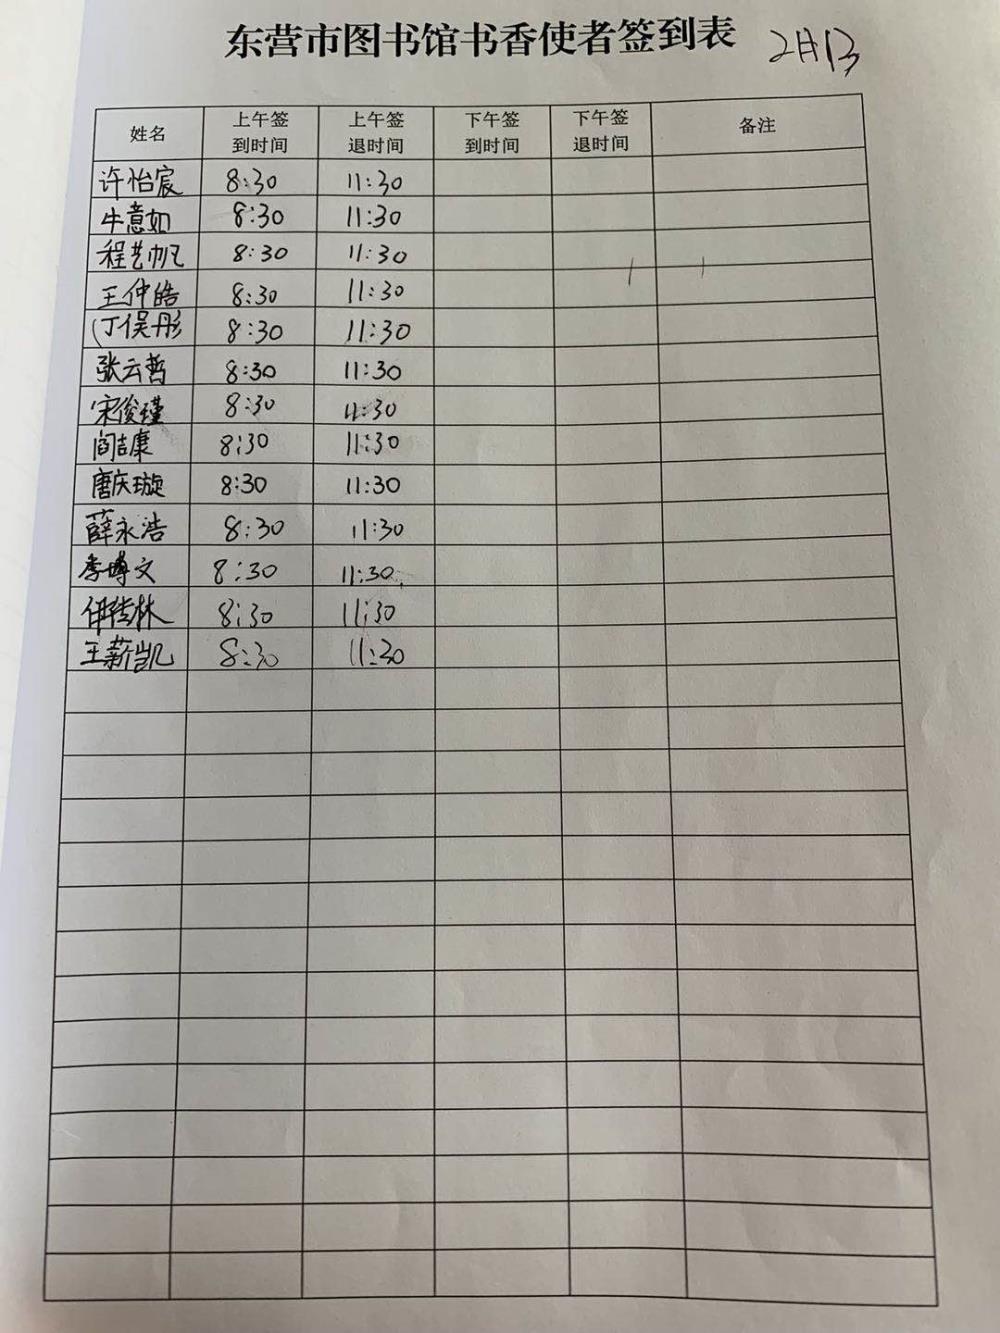 东营市图书馆书香使者签到表 2月13
姓名 上午签到时间 上午签退时间 下午签到时间 下午签退时间 备注
许怡宸 8:30 11:30
牛意如 8:30 11:30
程艺帆 8:30 11:30
王仲皓 8:30 11:30
丁俣彤 8:30 11:30
张云哲 8:30 11:30
宋俊瑾 8:30 11:30
阎吉康 8:30 11:30
唐庆璇 8:30 11:30
薛永浩 8:30 11:30
李博文 8:30 11:30
8:30 11:30
王薪凯 8:30 11:30